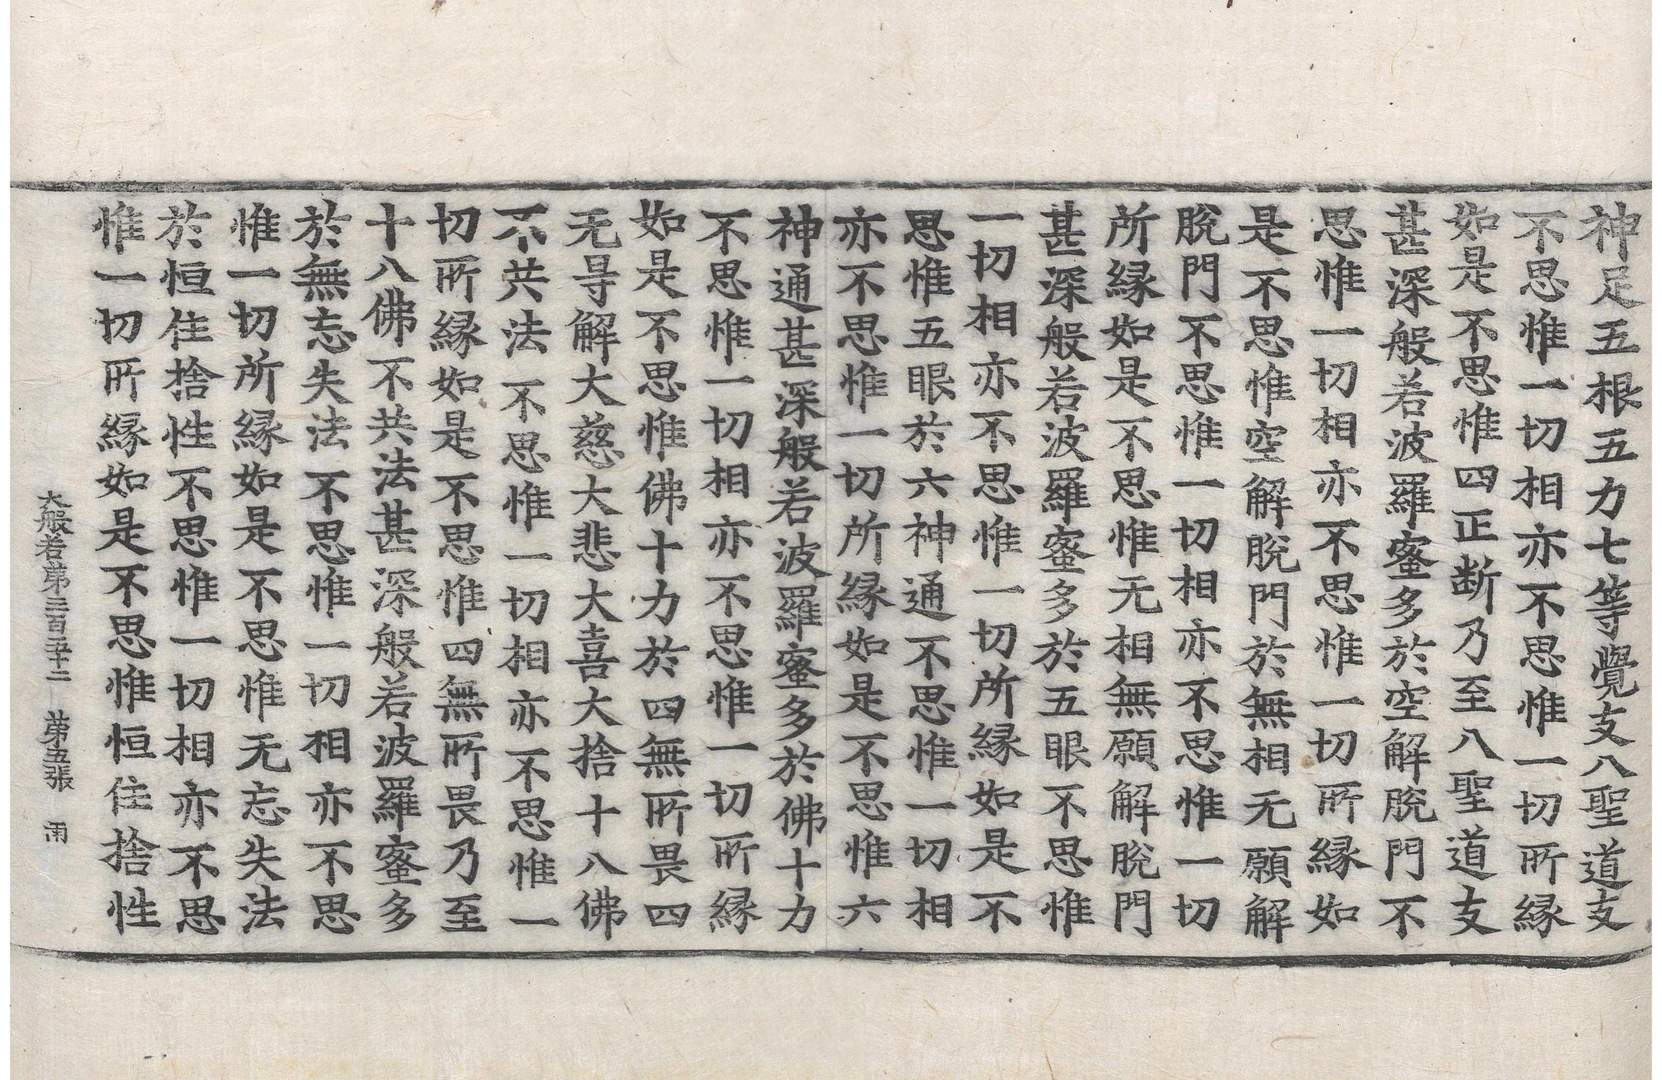 神足五根五力七等覺支八聖道支
不思惟一切相亦不思惟一切所縁
如是不思惟四正断乃至八聖道支
甚深般若波羅蜜多於空解脫門不
思惟一切相亦不思惟一切所縁如
是不思惟空解脫門於無相无願解
脫門不思惟一切相亦不思惟一切
所縁如是不思惟无相無願解脫門
甚深般若波羅蜜多於五眼不思惟
一切相亦不思惟一切所縁如是不
思惟五眼於六神通不思惟一切相
亦不思惟一切所縁如是不思惟六
神通甚深般若波羅蜜多於佛十力
不思惟一切相亦不思惟一切所縁
如是不思惟佛十力於四無所畏四
无㝵解大慈大悲大喜大捨十八佛
不共法不思惟一切相亦不思惟一
切所縁如是不思惟四無所畏乃至
十八佛不共法甚深般若波羅蜜多
於無忘失法不思惟一切相亦不思
惟一切所縁如是不思惟无忘失法
於恒住捨性不思惟一切相亦不思
惟一切所縁如是不思惟恒住捨性
大般若第三百五十二 第五張 雨